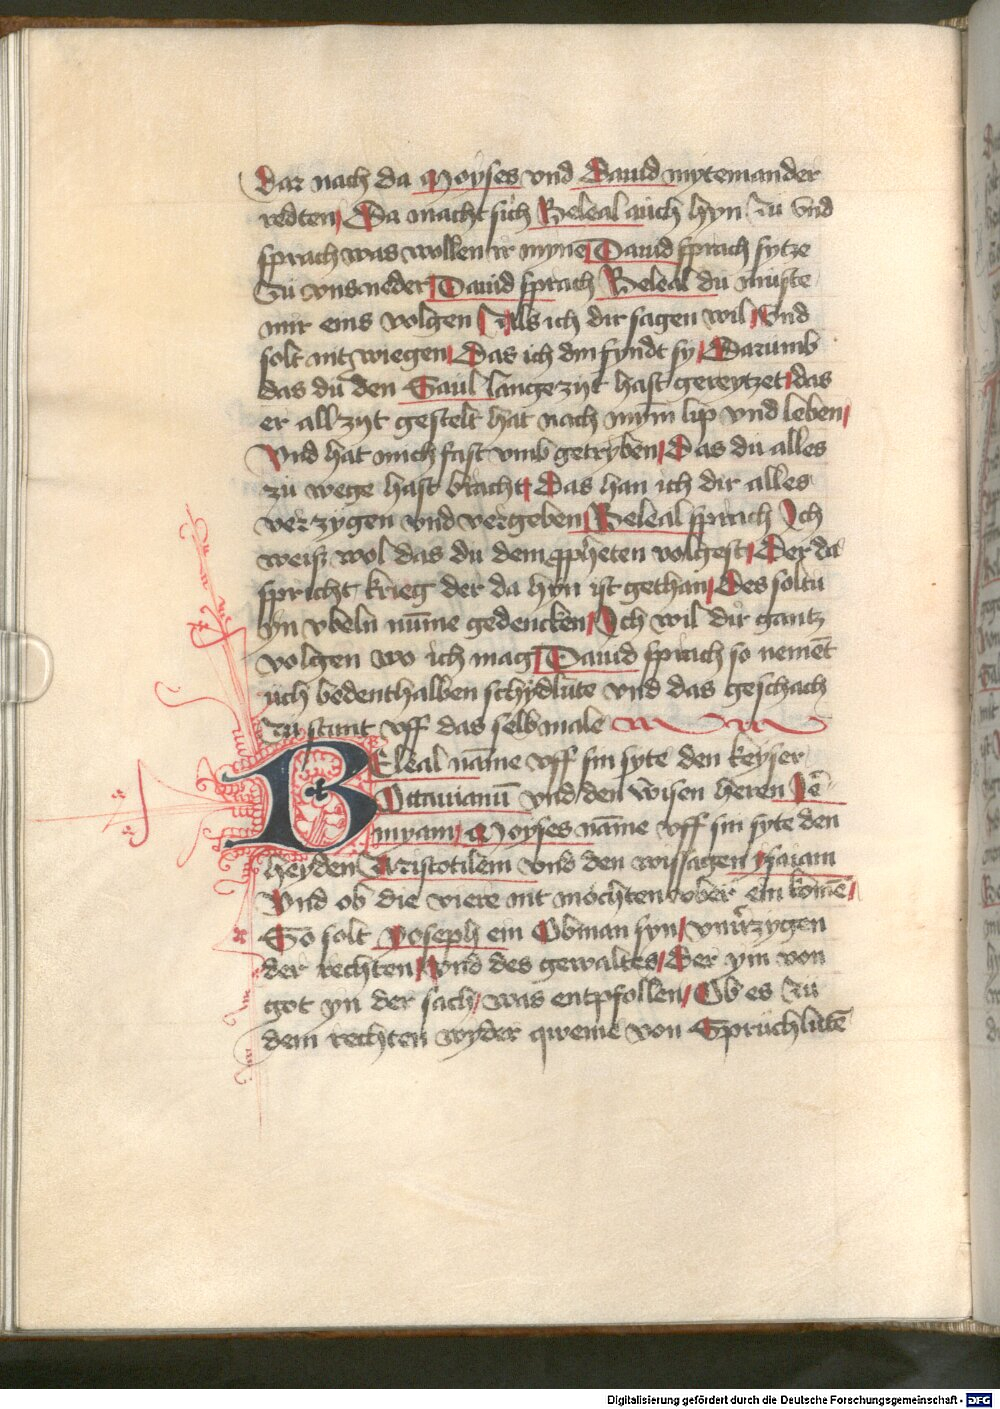 Dar nach da Moyses vnd Dauid myteinander
redten Da macht sich Beleal auch hyn zu vnd
sprach was wollen ir myne Dauid sprach sytze
zu vns neder Dauid sprach Beleal du muste
mir eins volgen Als ich dir sagen wil Vnd
solt nit wiegen Das ich din fyndt sy Darumb
das du den Saul lange zyt hast gereytzet das
er all zyt gestelt hat nach mym lip vnd leben
Vnd hat mich fast vmb getryben Das du alles
zu wege hast bracht Das han ich dir alles
verzygen vnd vergeben Beleal sprach Ich
weiß wol das du dem ppheten volgest Der da
spricht krieg der da hyn ist gethan Des soltu
yn vbeln nūme gedencken Ich wil dir gantz
volgen wo ich mag Dauid sprach so nemēt
uch bedenthalben schydlute vnd das geschach
zu stunt vff das selb male
Beleal nāme vff sin syte den keyser
Octauianū vnd den wisen heren Je
miyam Moyses nāme vff sin syte den
heyden Aristotilem vnd den wissagen ysaiam
Vnd ob die viere nit mochten vber ein komē
So solt Joseph ein Obman syn vnūrzygen
der rechten Vnd des gewaltes Der ym von
got yn der sach was entpfollen Ob es zu
dem rechten wyder qweme von Spruchlutē
Digitalisierung gefördert durch die Deutsche Forschungsgemeinschaft - DFG